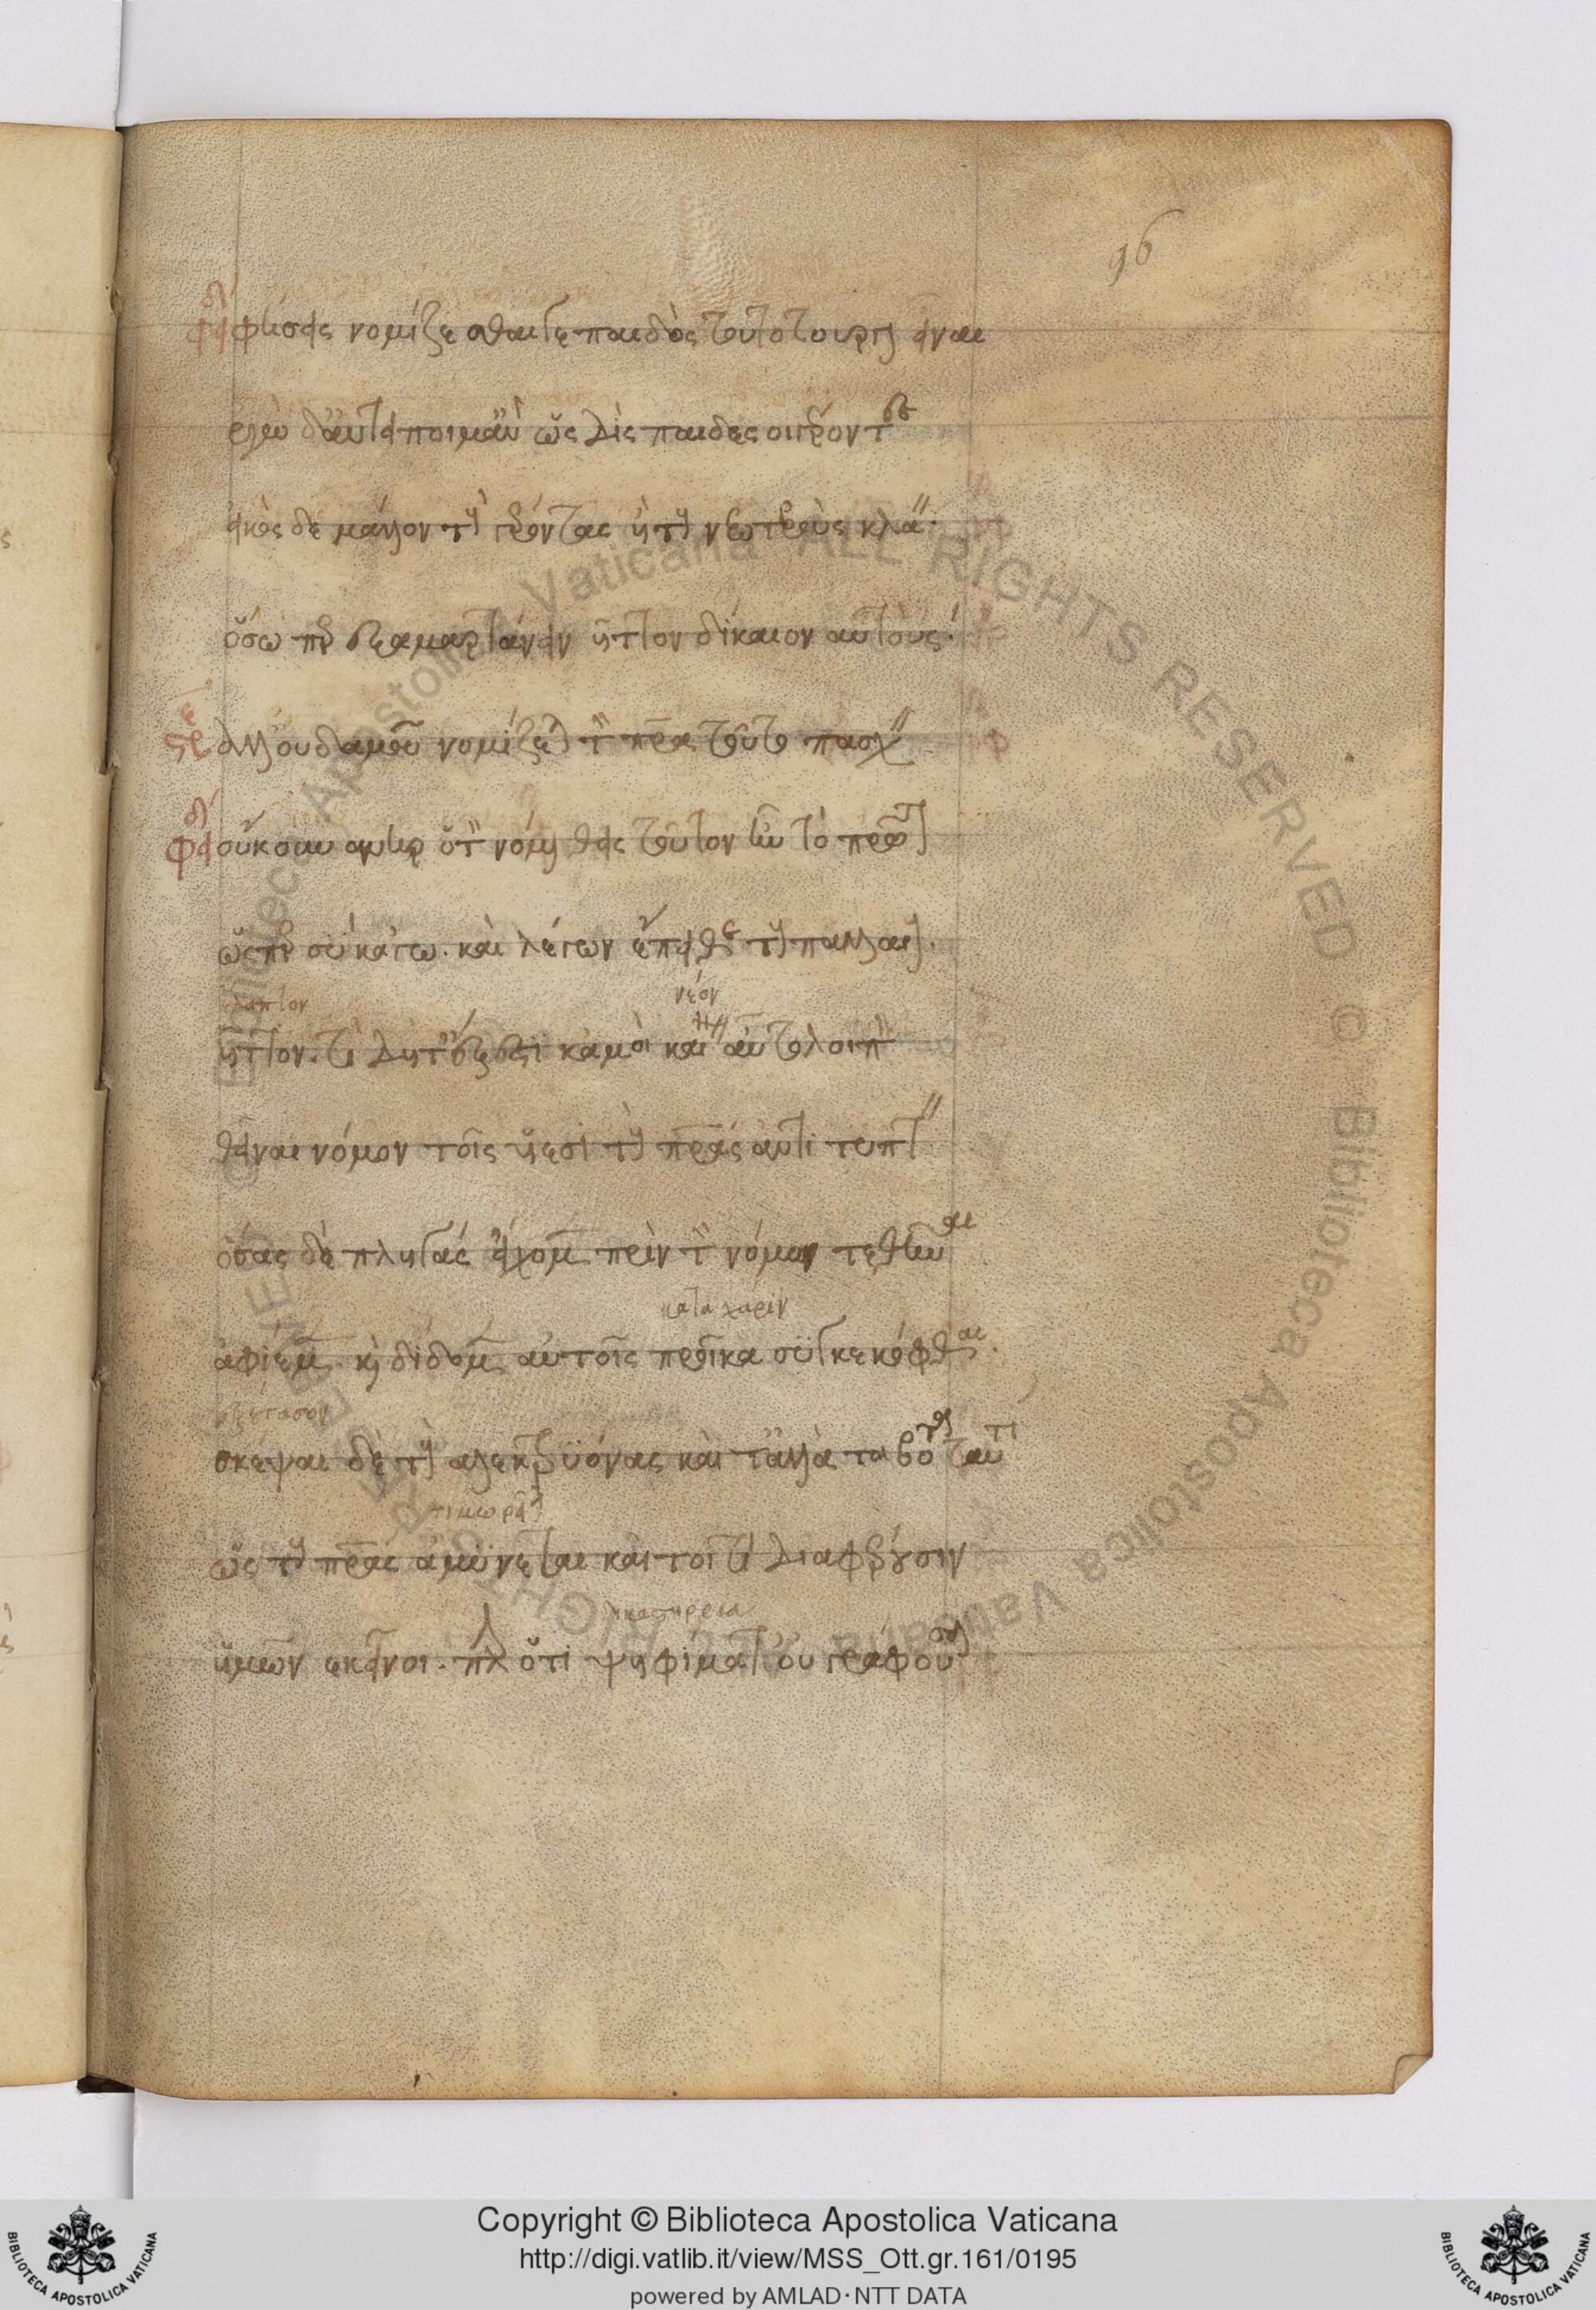 96
φήσεις νομίζεσθαί γε παιδὸς τοῦτο τοὔργον εἶναι
ἐγὼ δ' ἀντείποιμ' ἂν ὡς δὶς παῖδες οἱ γέροντες
εἰκὸς δὲ μᾶλλον τοὺς γέροντας ἢ τοὺς νεωτέρους κλάειν
ὅσωπερ ἐξαμαρτάνειν ἧττον δίκαιον αὐτούς.
στρε ἀλλ' οὐδαμοῦ νομίζεται τὸν πατέρα τοῦτο πάσχειν
φειδ οὔκουν ἀνὴρ ὁ τὸν νόμον θεὶς τοῦτον ἦν τὸ πρῶτον
ὥσπερ σὺ κἀγώ. καὶ λέγων ἔπειθε τοὺς παλαιούς.
νέον
ἧττον τί δῆτ' ἔξεστι κἀμοὶ καινὸν αὖ τὸ λοιπὸν
θεῖναι νόμον τοῖς υἱέσι τοὺς πατέρας ἀντιτύπτειν
ὅσας δὲ πληγὰς εἴχομεν πρὶν τὸν νόμον τεθῆναι
κατὰ χάριν
ἀφίεμεν καὶ δίδομεν αὐτοῖς προῖκα συγκεκόφθαι.
ἐξέτασον
σκέψαι δὲ τοὺς ἀλεκτρυόνας καὶ τἄλλα τὰ βοτὰ ταυτὶ
τιμωρεῖται
ὡς τοὺς πατέρας ἀμύνεται καίτοι τί διαφέρουσιν
ἡμῶν ἐκεῖνοι. πλὴν ὅτι ψηφίσματ' οὐ γράφουσιν
Copyright © Biblioteca Apostolica Vaticana
http://digi.vatlib.it/view/MSS_Ott.gr.161/0195
powered by AMLAD·NTT DATA